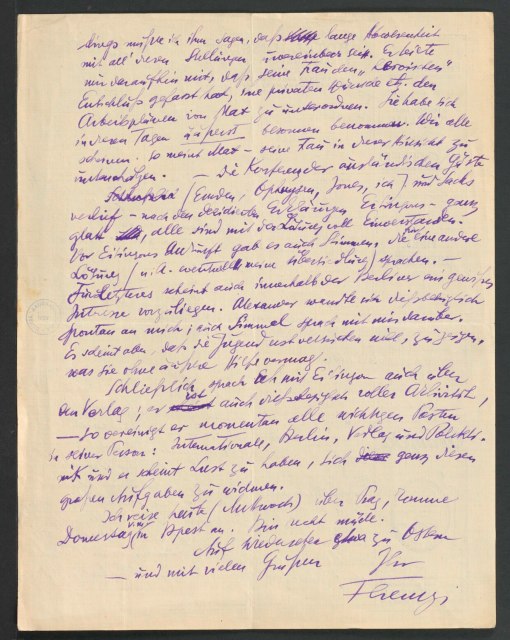 dings müsste ich ihm sagen, daß lange Abwesenheit
mit all diesen Stellungen unvereinbar sei. Er teilte
mir daraufhin mit, daß seine Frau den „heroischen"
Entschluß gefasst hat, ihre privaten Wünsche etc. den
Arbeitsplänen von Max zu unterordnen. Sie habe sich
in diesen Tagen äußerst benommen. Wir alle
scheinen, so meint Max – seine Frau in dieser Hinsicht zu
unterschätzen. – Die Konferenz der ausländischen Gäste
(Emden, Ophuijsen, Jones, ich) und Sachs
verlief – nach den Erklärungen Eitingons – ganz
glatt, alle sind mit der Lösung voll einverstanden.
Vor Eitingons Ankunft gab es auch Stimmen, die für eine andere
Lösung (u. A. eventuell meine Übersiedlung) sprachen. –
Für Letzteres scheint auch innerhalb der Berliner ein gewisses
Interesse vorzuliegen. Alexander wandte sich diesbezüglich
spontan an mich; auch Simmel sprach mit mir darüber.
Es scheint aber, daß die Jugend noch nicht, zu zeigen,
was sie ohne äußere Hilfe vermag.
Schließlich sprach ich mit Eitingon auch über
den Verlag; er ist auch diesbezüglich voller Aktivität,
– so vereinigt er momentan alle wichtigen Posten
in seiner Person: Internationale, Berlin, Verlag und Poliklinik
und er scheint Lust zu haben, sich ganz diesen
großen Aufgaben zu widmen.
Ich reise heute (Mittwoch) über Prag, komme
Donnerstag in Bpest an. Bin recht müde.
Auf Wiedersehen etwa zu Ostern
– und mit vielen Grüßen
Ihr
Ferenczi